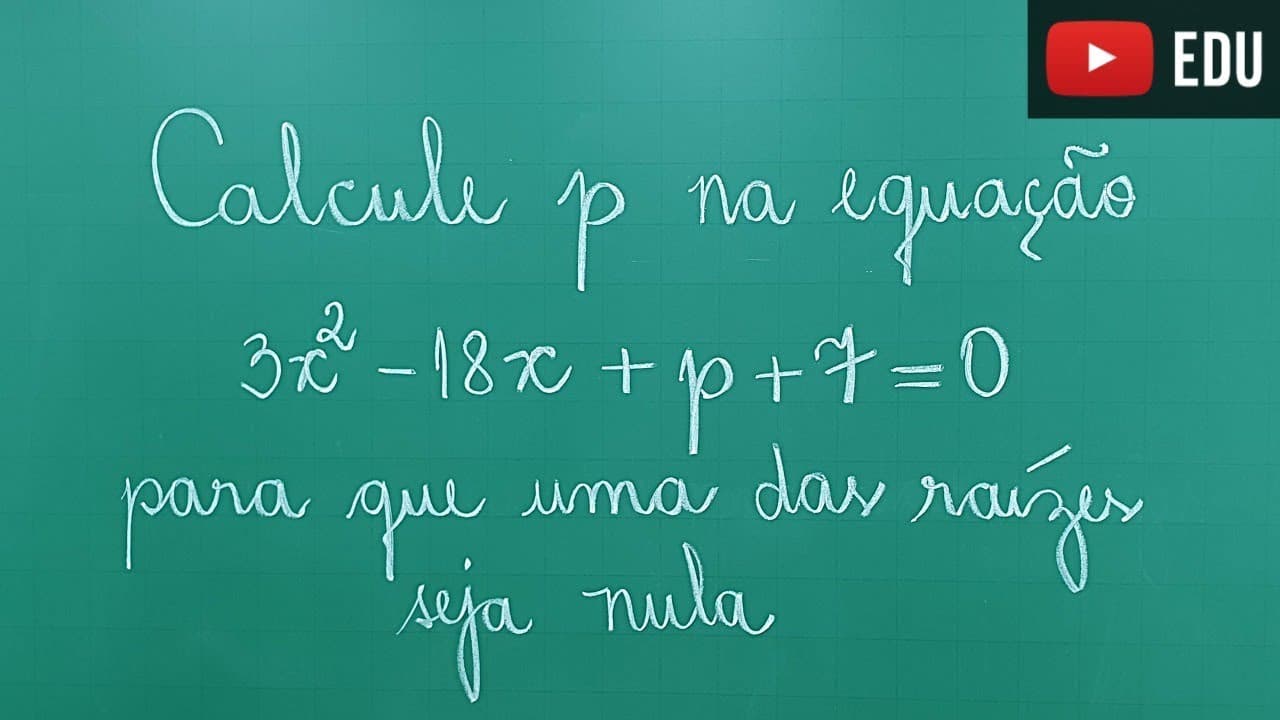 EDU
Calcule p na equação
3x² - 18x + p + 7 = 0
para que uma das raízes
seja nula